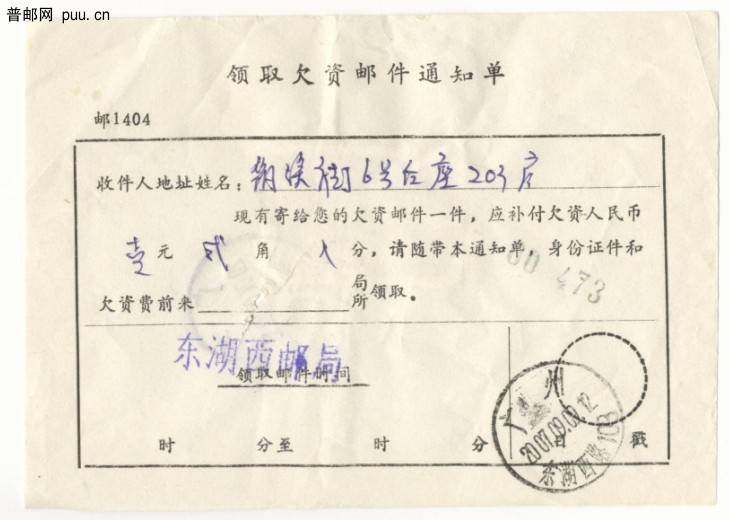 普邮网 puu.cn
领取欠资邮件通知单
邮1404
收件人地址姓名: 街6号后座203房
现有寄给您的欠资邮件一件，应补付欠资人民币
壹元贰角 分，请随带本通知单，身份证件和
欠资费前来 局所领取。
60 473
东湖西邮局
领取邮件时间
时 分至 时 分 日戳
广州
2007.09.09.12
东湖西路103